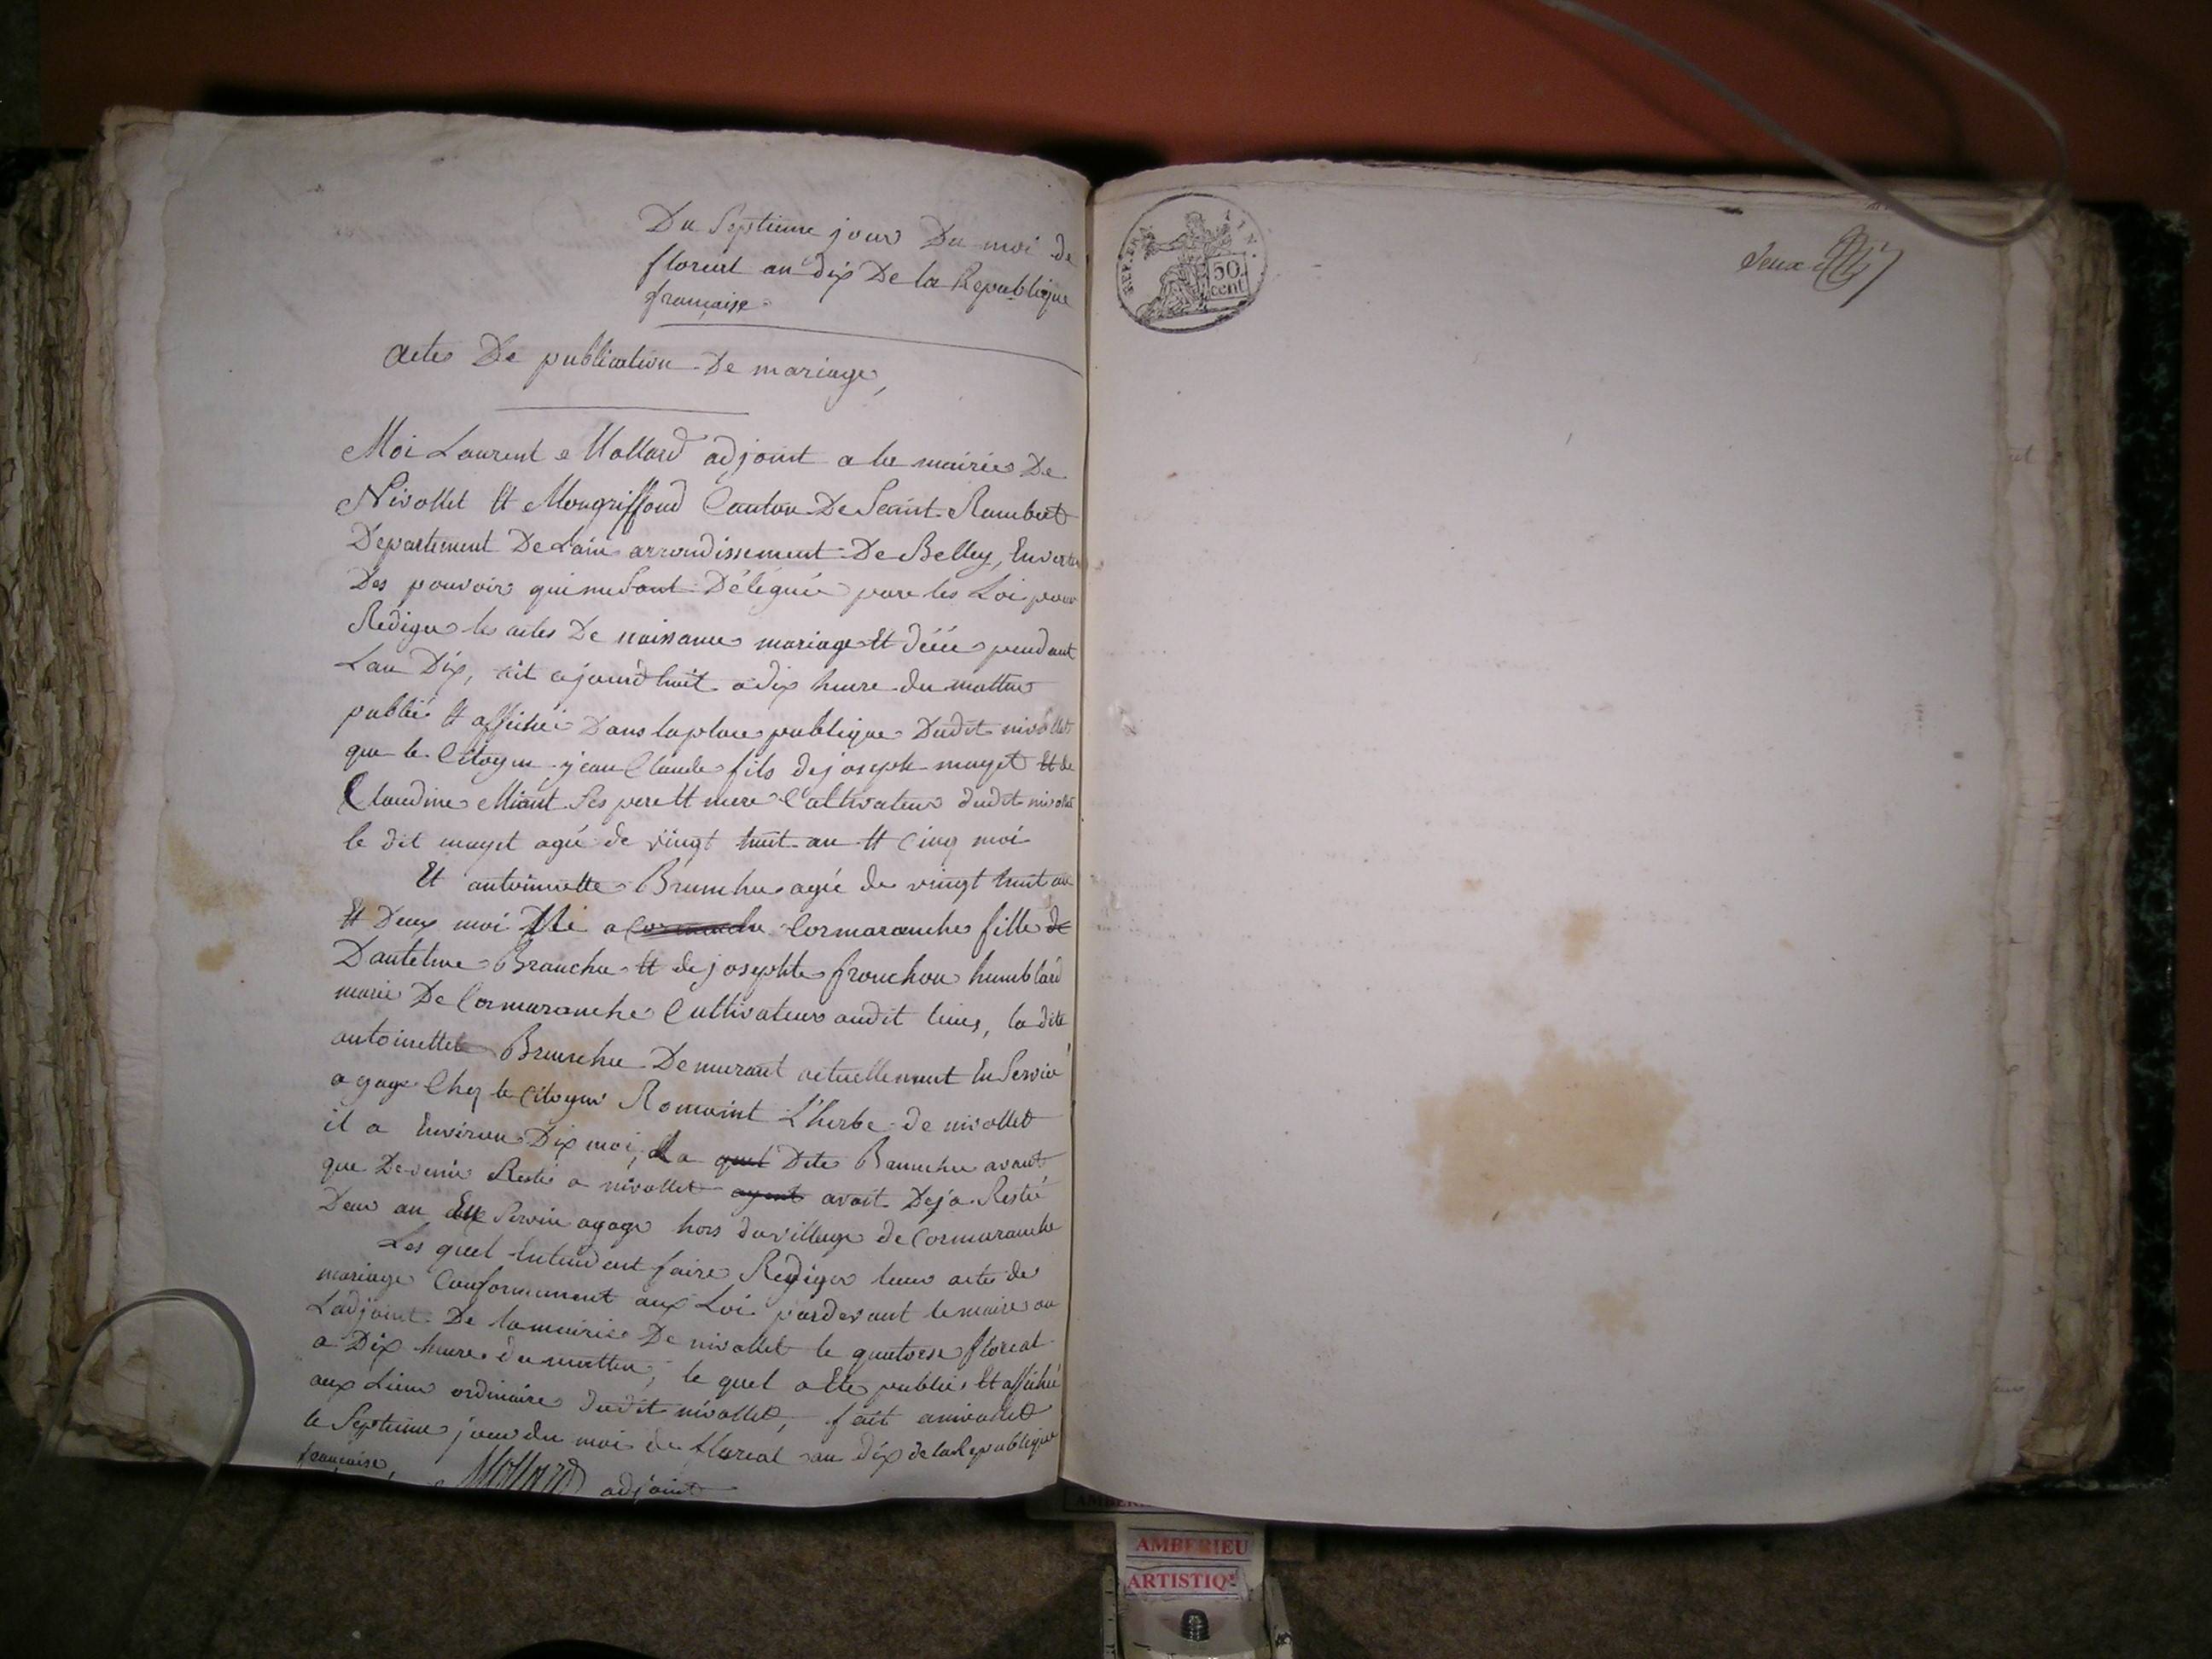 Du Septieme jour Du moi de
floreal an dix De la Republique
française
actes De publication De mariage,
Moi Laurent Mollard adjoint a la mairies De
Nivollet Et Mongriffond Canton De Saint Rambert
Departement De Lain arrondissement De Belley, En vertu
Des pouvoir qui me sont Délégué par les Loi pour
Rediger les actes De naissance mariage Et décé pendant
Lan Dix, ait ajourdhuit a dix heure du mattin
publié Et affiché Dans la place publique Dudit nivollet
que le Citoyen jean Claude fils de joseph mayet Et de
Claudine Miant Ses pere Et mere Cultivateur dudit nivollet
le dit mayet agé de vingt huit an Et Cinq moi
Et antoinette Brunche agée de vingt huit an
Et Deux moi Né a Cormaranche fille de
Dantelme Branche Et de josephte fronchon humblard
marié De Cormaranche Cultivateur audit lieus, la dite
antoinette Brunche Demurant actuellement En Servic
a gage Chez le Citoyen Romaint L'herbe de nivollet
il a Environ Dix moi, la Dite Brunche avant
que De venir Resté a nivollet avoit Deja Resté
Deux an En Servic a gage hors du village de Cormaranche
Les quel Entendent faire Rediger leur actes de
mariage Conformement aux Loi pardevant le maire ou
Ladjoint De la mairie De nivollet le quatorse floreal
a Dix heure du mattin, le quel a Ete publié Et affiché
aux Lieux ordinaire dudit nivollet, fait a nivollet
le Septieme jour du moi de floreal an dix de la Republique
francaise, Mollard adjoint
REP. FRA.
50
cent
AMBERIEU
ARTISTIQ